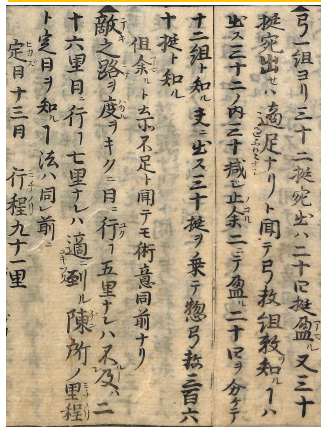 弓一組ヨリ三十二挺宛出ハ二十口挺盈ル又三十
挺宛出セハ適足ナリト聞テ弓数組数ヲ知ルヿハ
出ス三十二ノ内三十減シ止余二ニテ盈ル二十口ヲ分ケテ
十二組ト知ル支ニ出ス三十挺ヲ乗テ惣弓数三百六
十挺ト知ル
但余ルト云尓不足ト聞テモ術意同前ナリ
敵之路ヲ度ヲキクニ日ニ行ヿ五里ナレハ不及ハ二
十六里日ニ行ヿ七里ナレハ適到ル陳所ノ里程
ト定日ヲ知ルヿ法ハ同前ニ
定日十三日 行程九十一里